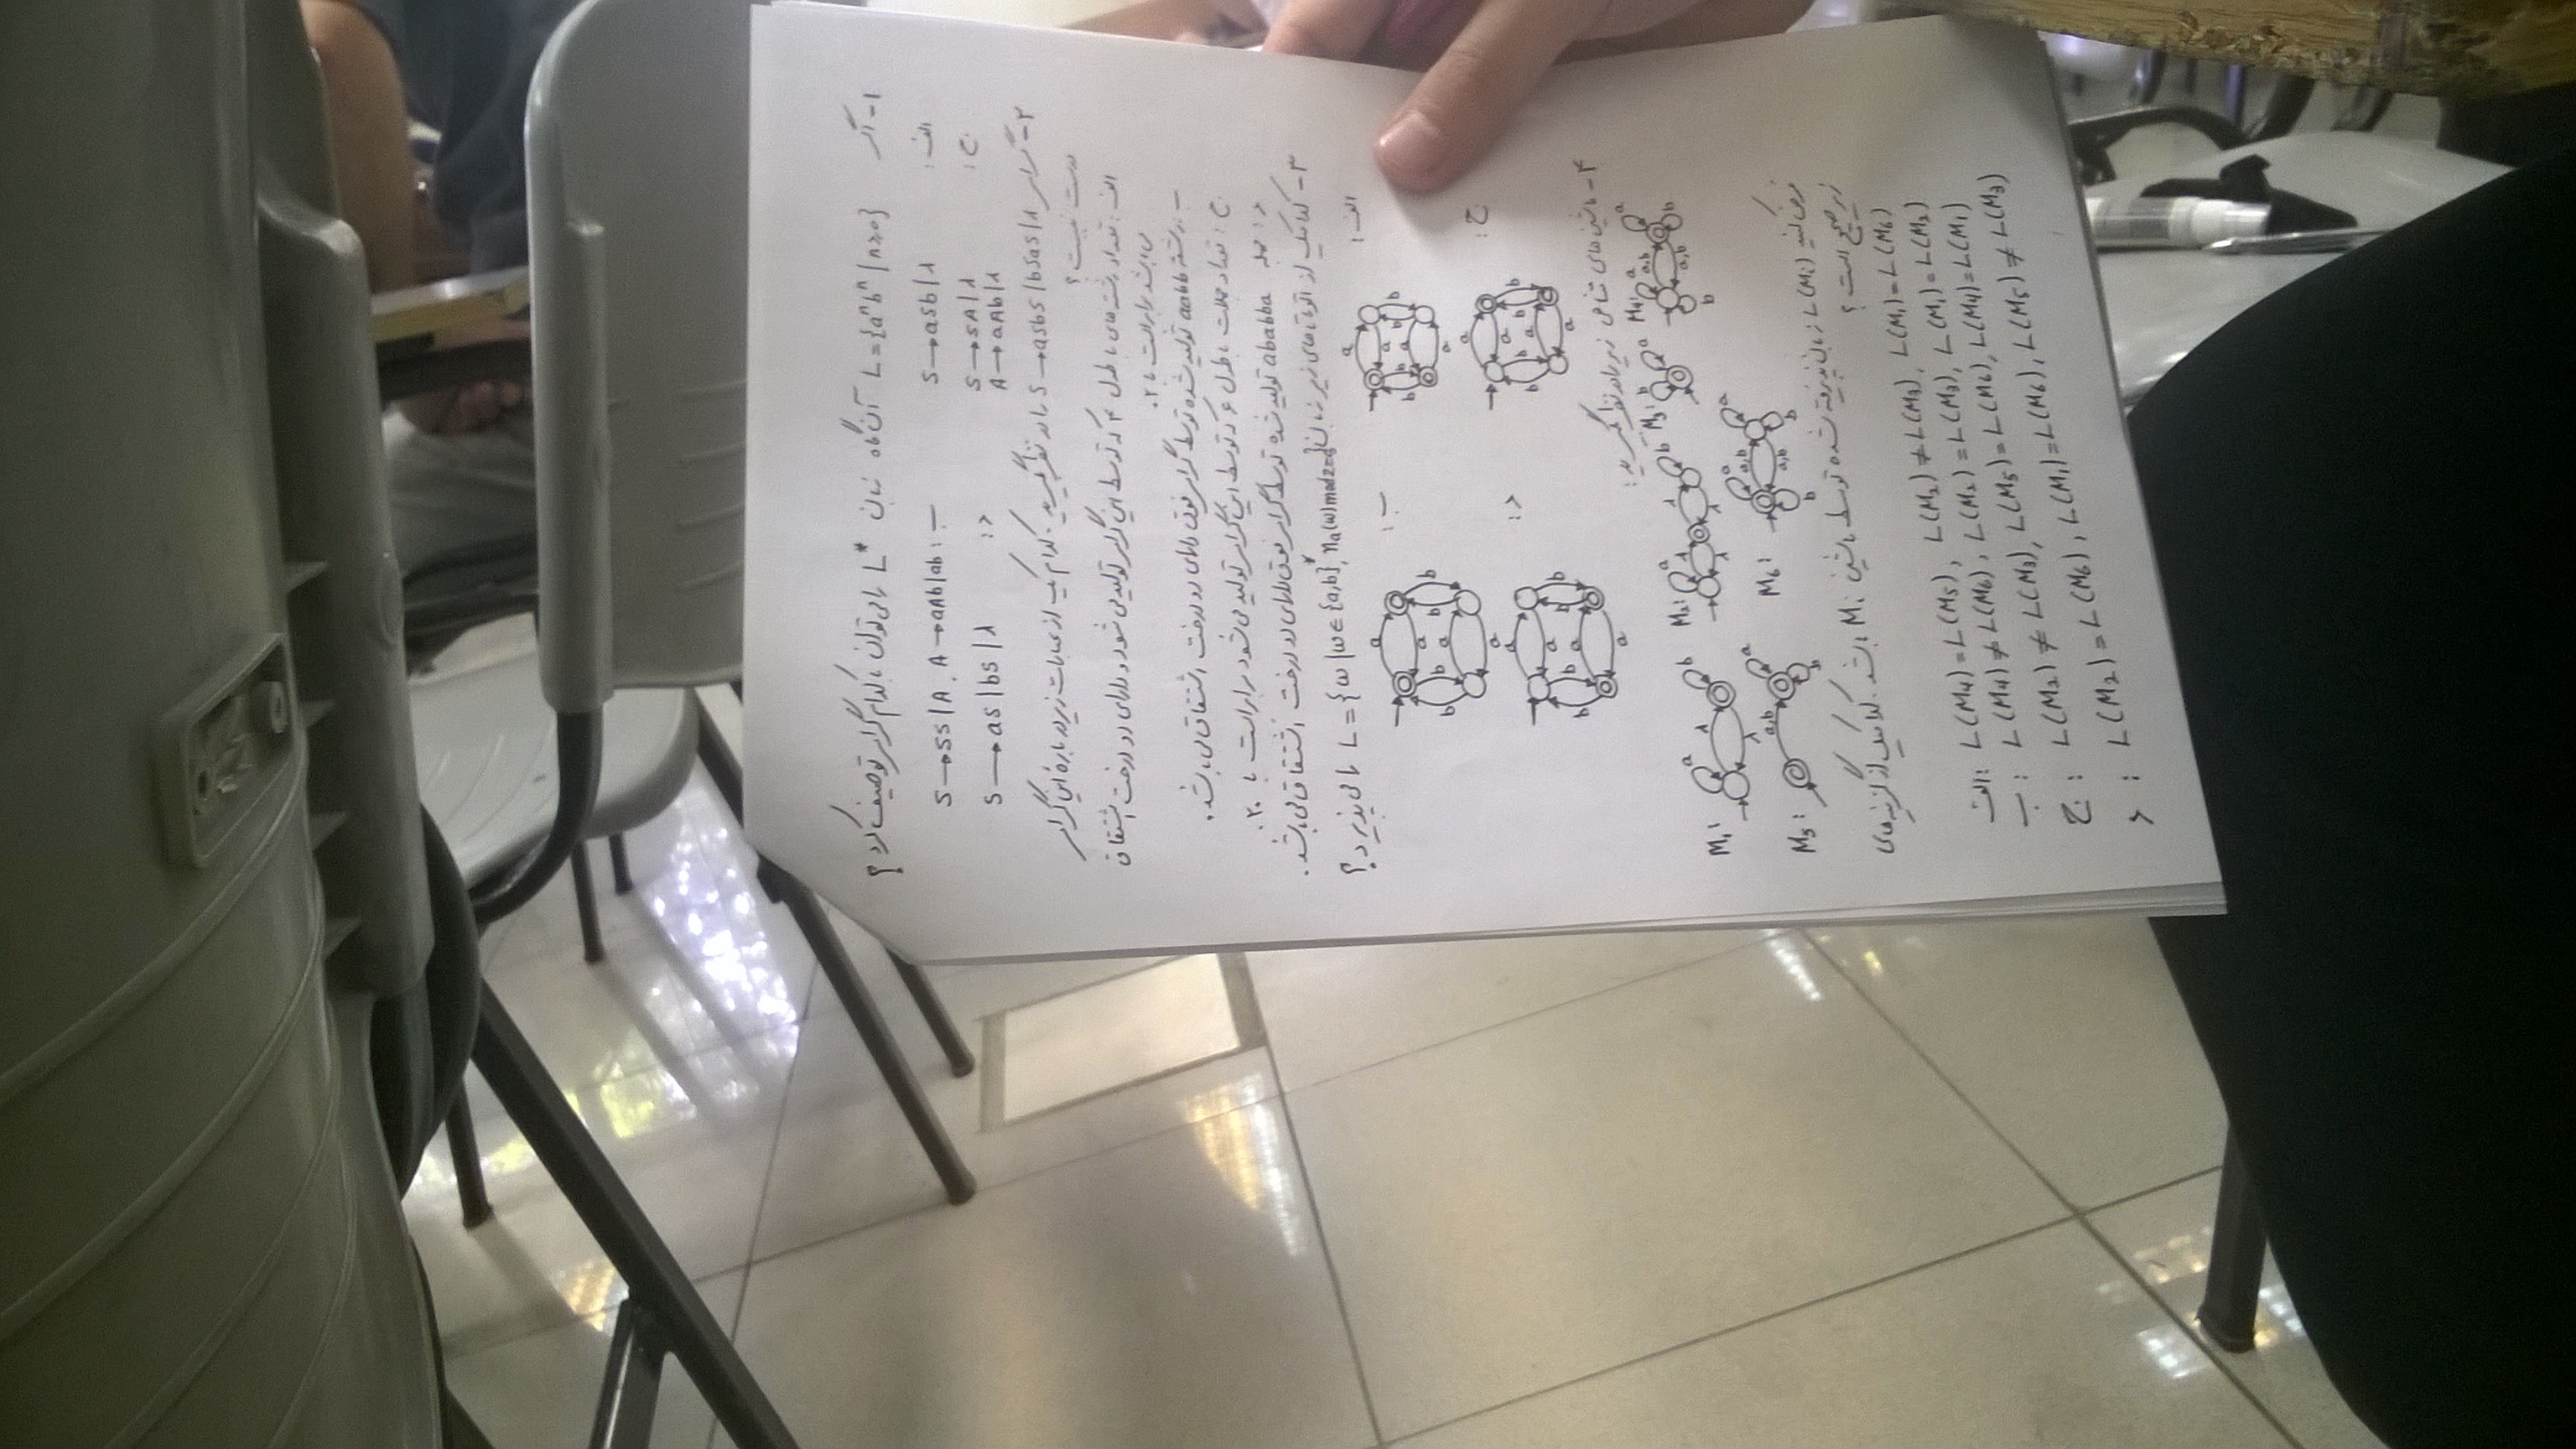 ۱- اگر L={aⁿbⁿ | n≥0} آن گاه زبان L* را می توان با کدام گرامر توصیف کرد؟
الف: S→aSb|λ ب: S→SS|A , A→aAb|ab
ج: S→SA|λ د: S→aS|bS|λ
A→aAb|λ
۲- گرامر S→aSbS|bSaS|λ را در نظر بگیرید. کدام یک از عبارات زیر در بارهٔ این گرامر
درست نیست؟
الف: تعداد رشته های با طول ۴ که توسط این گرامر تولید می شود و دارای دو درخت اشتقاق
می باشد برابر است با ۲.
ب: رشته aabb تولید شده توسط گرامر فوق دارای دو درخت اشتقاق می باشد.
ج: تعداد جملات با طول ۶ که توسط این گرامر تولید می شود برابر است با ۲۰.
د: جمله ababba تولید شده توسط گرامر فوق دارای دو درخت اشتقاق می باشد.
۳- کدامیک از اتوماتای زیر زبان L={ω|ω∈{a,b}*, nₐ(ω)mod2=0} را می پذیرد؟
الف:
a a b b b b a a
ب:
a a b b b b a a
ج:
a a b b b b a a
د:
a a b b b b a a
۴- ماشین های متناهی زیر را در نظر بگیرید:
M₁: a λ λ b
M₂: a λ λ λ λ b
M₃: b a
M₄: a a,b a,b a b b
M₅: a,b a b
M₆: a a,b a,b a b b
فرض کنید L(Mᵢ) زبان پذیرفته شده توسط ماشین Mᵢ باشد. کدامیک از گزینه های
زیر صحیح است؟
الف: L(M₄)=L(M₅), L(M₂)≠L(M₃), L(M₁)=L(M₆)
ب: L(M₄)≠L(M₆), L(M₂)=L(M₃), L(M₁)=L(M₂)
ج: L(M₂)≠L(M₃), L(M₅)=L(M₆), L(M₄)=L(M₁)
د: L(M₂)=L(M₆), L(M₁)=L(M₆), L(M₅)≠L(M₃)